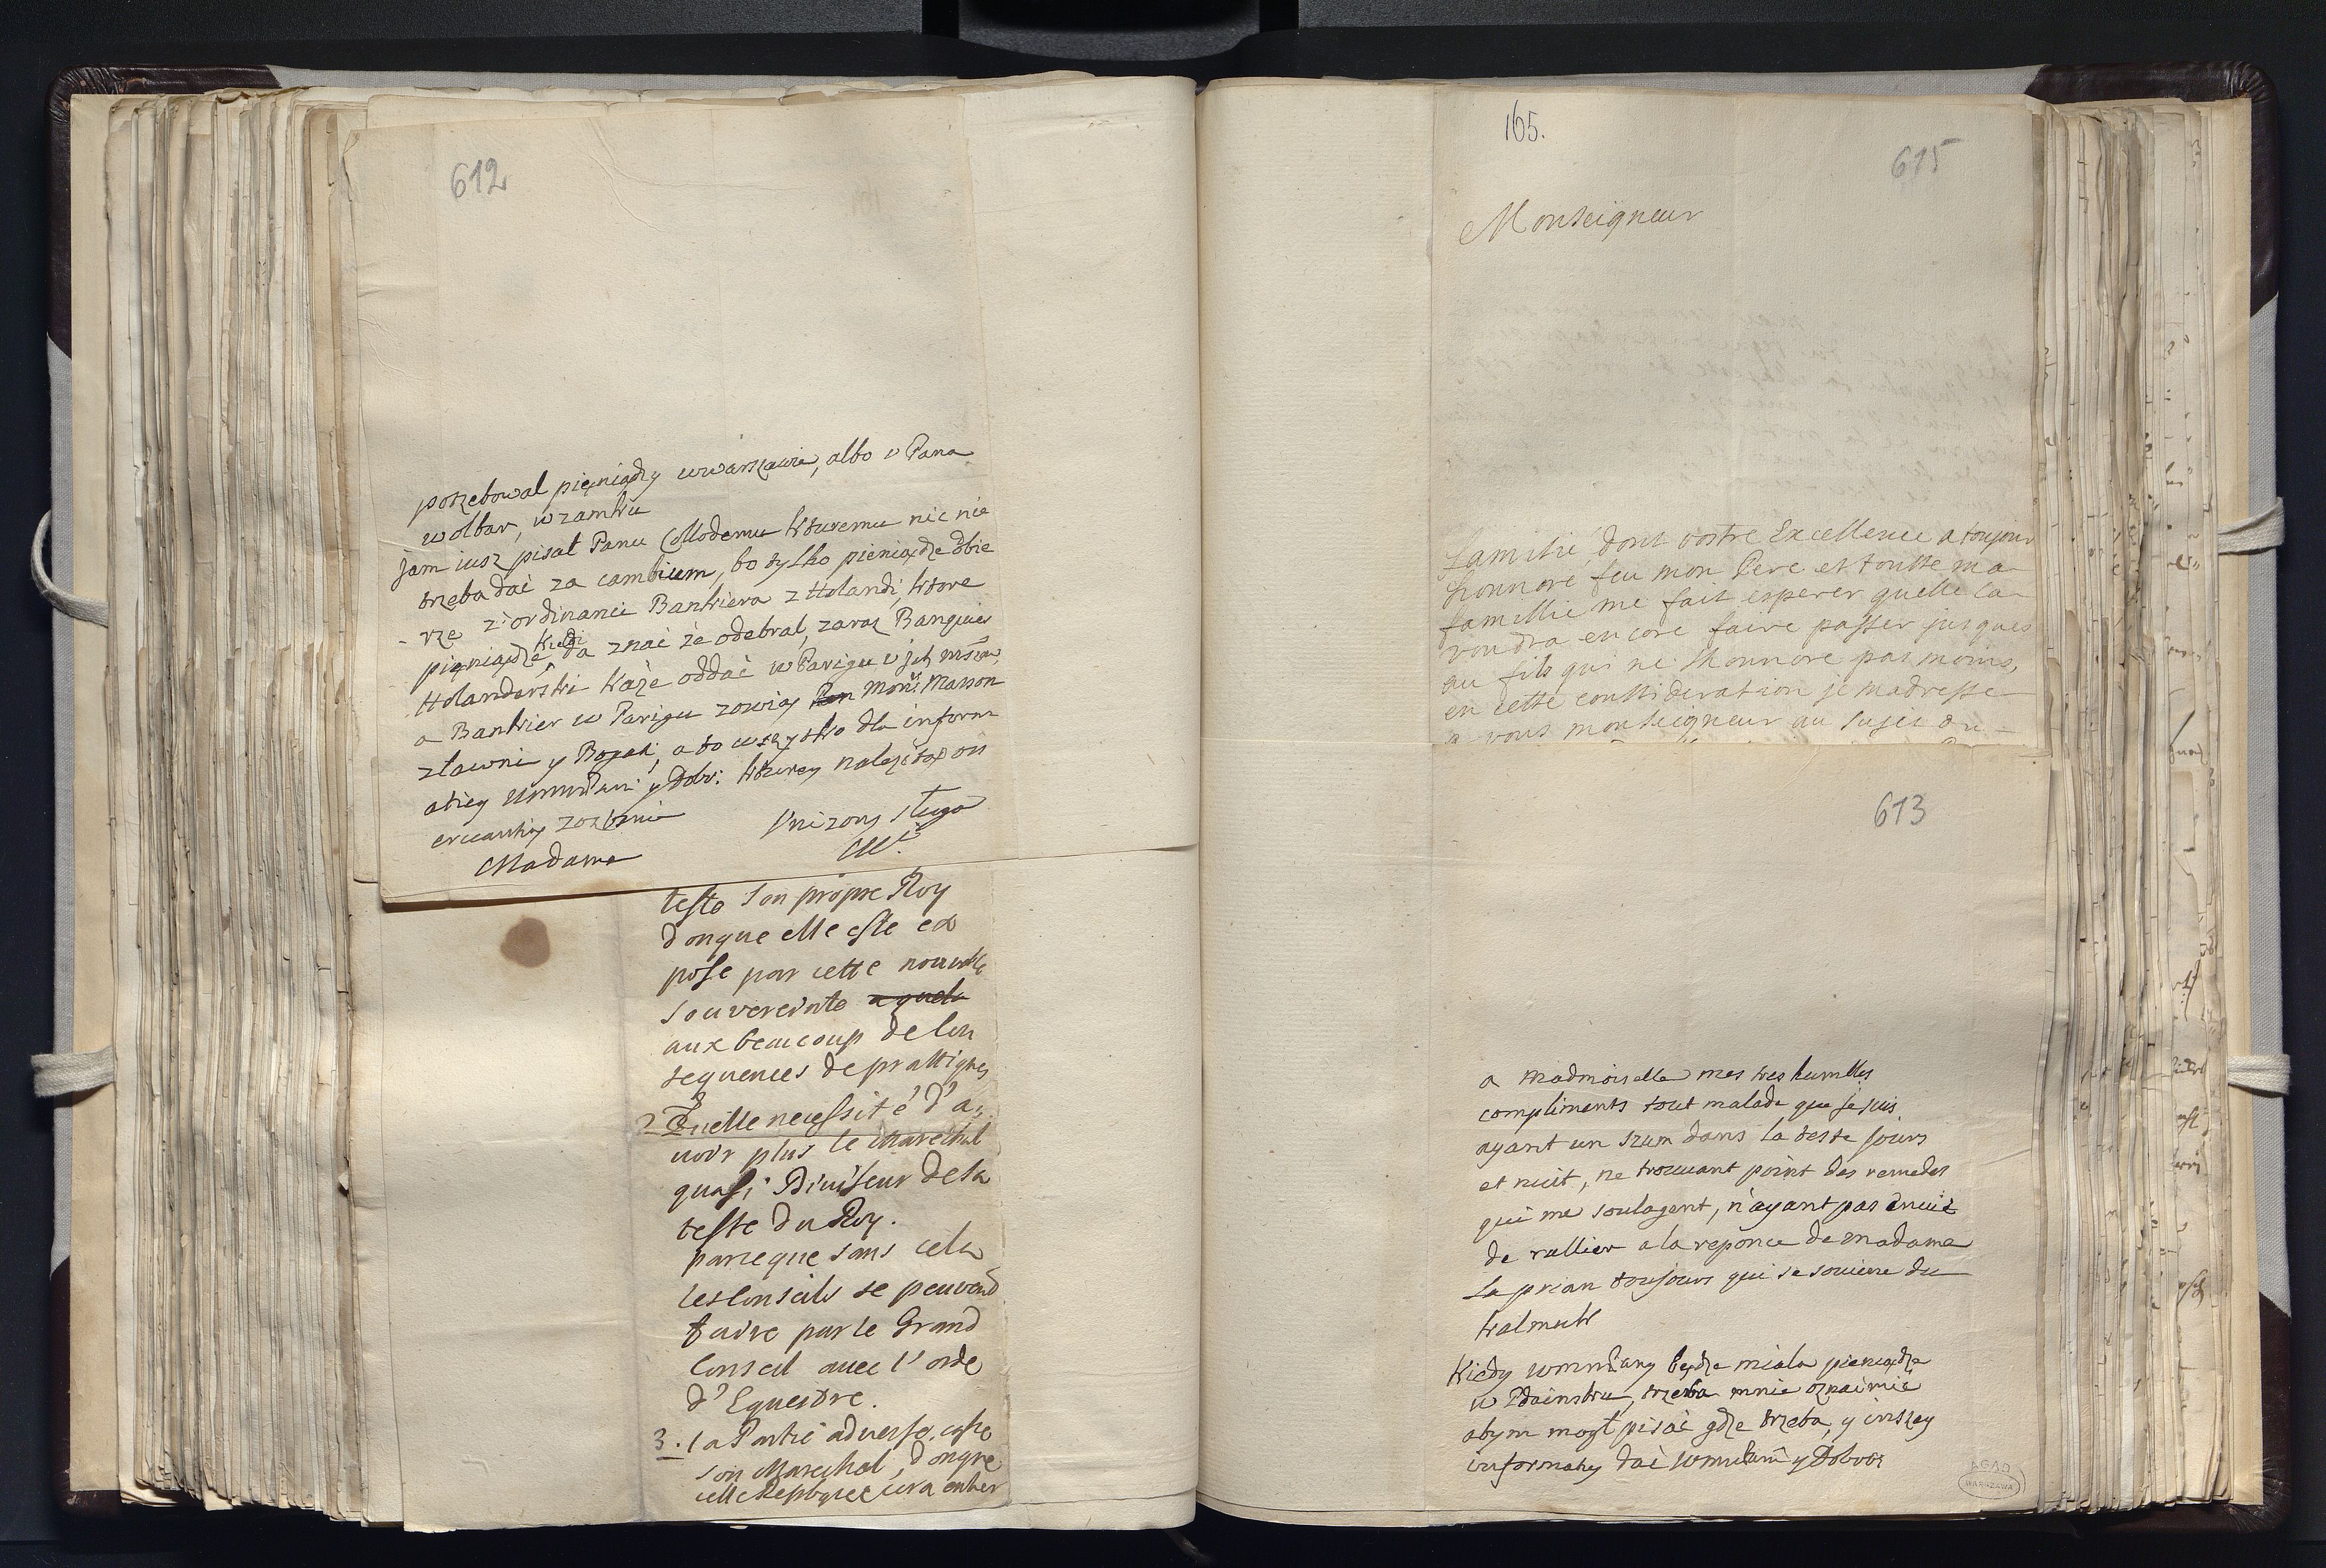 612
potrzebował pięniądzy wwarszawie, albo v Pana
wolbar, w zamku
jam iusz pisał Panu Clodemu kturemu nic nie
trzeba dać za cambium, bo tylko pieniądze obie
rze z'ordinanci Bankiera z Holandi, ktore
pięniądze kiedi da znać że odebrał, zaraz Banquier
Holanderski każe oddać w Parigu
a Bankier w Parigu zowią Mons: Masson
zławni y Bogati, a to wszystko dla inform
atiey y Dobr: kturey należitą on
Vnizony sługa
Madama
teste son propre Roy
donque elle este ex
pose par cette nouvelle
souvereinte a quela
aux beaucoup de Con
sequences de prattiques
2 Quelle necessité d'a:
uoir plus le Marechal
quasi Diuiseur de la
teste du Roy.
parceque sans cela
les Conseils se peuvend
faire par le Grand
Conseil avec l'orde
d'Equestre.
3. la Partie adverse, coste
son Marechal, donque
165.
615
Monseigneur
Lamitié, dont vostre Excellence a toujour
honnoré feu mon Pere et toutte ma
famillie me fait esperer quelle la
voudra encore faire passer jusques
au fils qui ne lhonnore pas moins,
en cette consideration je madresse
a vous monseigneur au sujet du
613
a madmoiselle mes tres humlles
compliments tout malade que je suis
ayant un szum dans la teste jours
et nuit, ne trouuant point des remedes
qui me soulagent, n'ayant pas
de rallier a la reponce de madama
La prian toujours qui se souiene du
kalmuk
Kiedy będze miala pieniądze
w Gdainsku, trzeba mnie oznaimić
abym mogł pisać gdze trzeba, y inszey
informatiey dać y Dobroz
AGAD
WARSZAWA